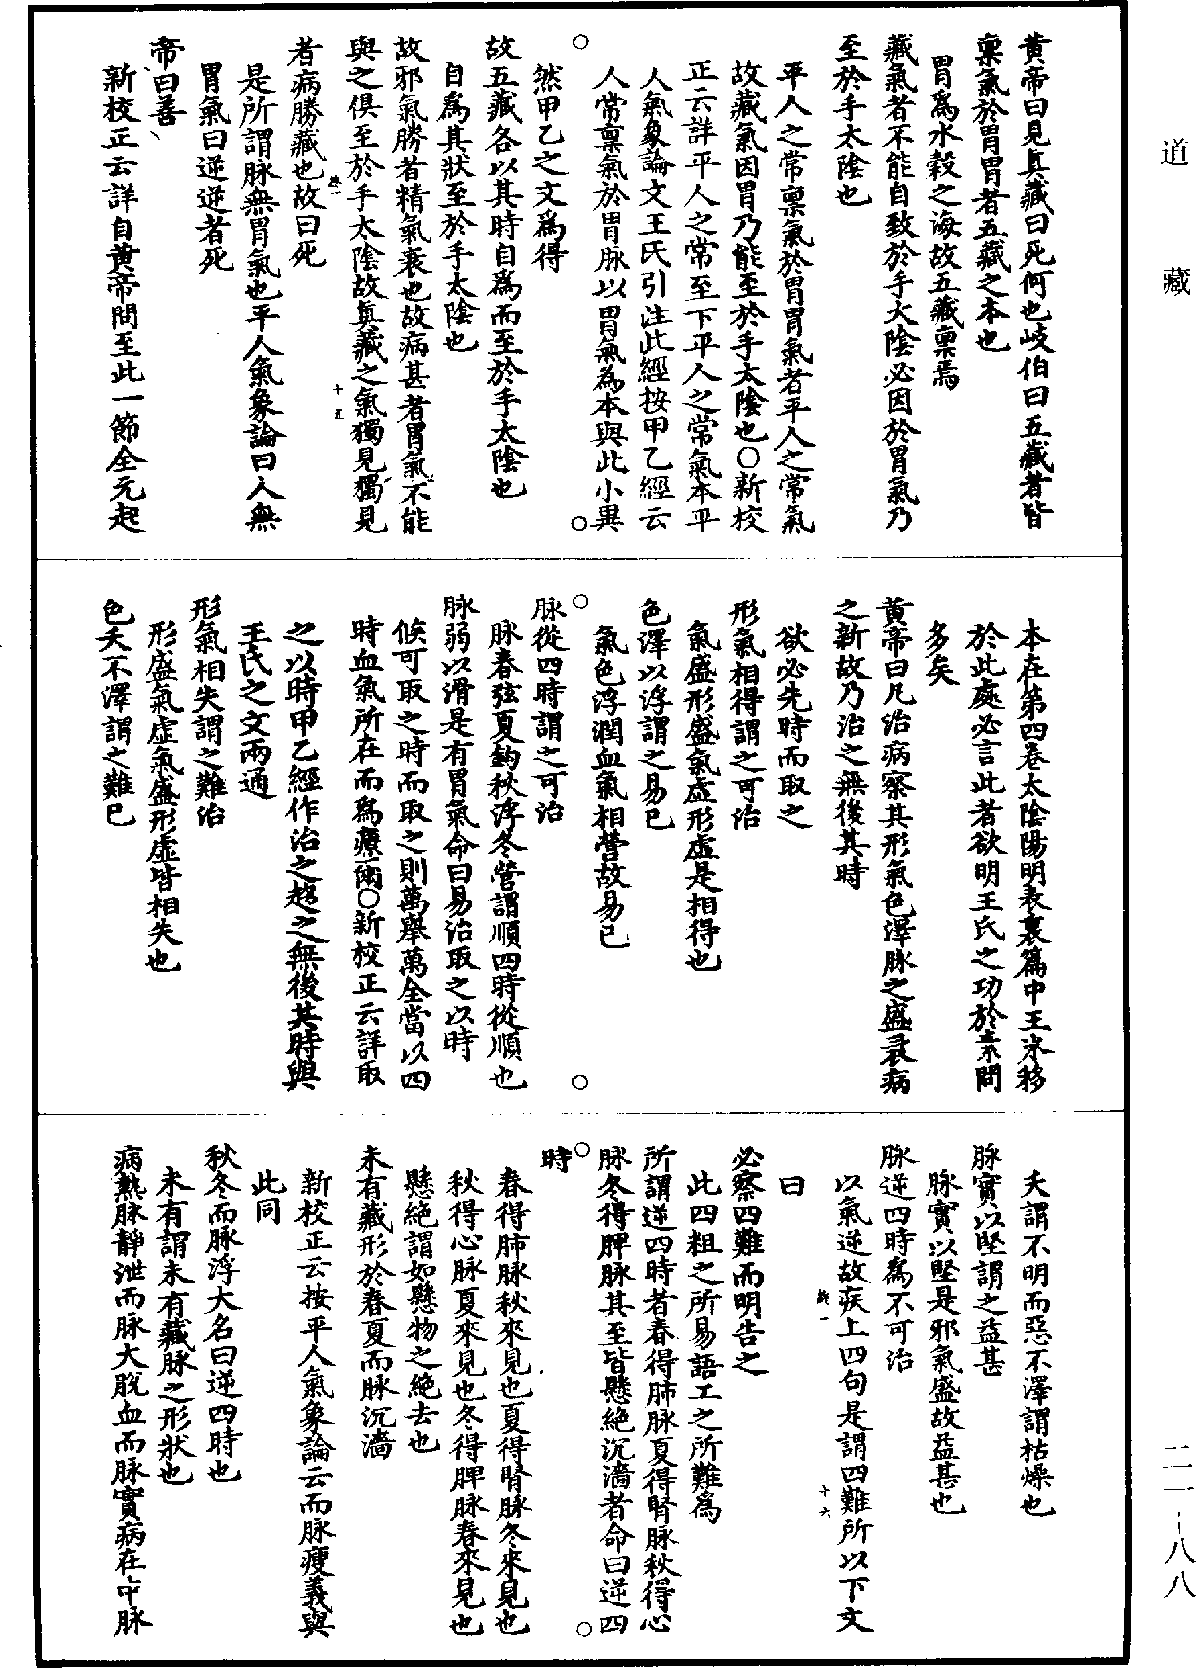 道藏
黃帝曰見真藏曰死何也岐伯曰五藏者皆
稟氣於胃胃者五藏之本也
胃爲水穀之海故五藏稟焉
藏氣者不能自致於手太陰必因於胃氣乃
至於手太陰也
平人之常稟氣於胃胃氣者平人之常氣
故藏氣因胃乃能至於手太陰也○新校
正云詳平人之常至下平人之常氣本平
人氣象論文王氏引注此經按甲乙經云
人常稟氣於胃脉以胃氣為本與此小異
然甲乙之文爲得
故五藏各以其時自爲而至於手太陰也
自爲其狀至於手太陰也
故邪氣勝者精氣衰也故病甚者胃氣不能
與之俱至於手太陰故真藏之氣獨見獨見
十五
者病勝藏也故曰死
是所謂脉無胃氣也平人氣象論曰人無
胃氣曰逆逆者死
帝曰善
新校正云詳自黃帝問至此一節全元起
本在第四卷太陰陽明表裏篇中王冰移
於此處必言此者欲明王氏之功於素問
多矣
黃帝曰凡治病察其形氣色澤脉之盛衰病
之新故乃治之無後其時
欲必先時而取之
形氣相得謂之可治
氣盛形盛氣虛形虛是相得也
色澤以浮謂之易已
氣色浮潤血氣相營故易已
脉從四時謂之可治
脉春弦夏鉤秋浮冬營謂順四時從順也
脉弱以滑是有胃氣命曰易治取之以時
候可取之時而取之則萬舉萬全當以四
時血氣所在而爲療爾○新校正云詳取
之以時甲乙經作治之趨之無後其時與
王氏之文兩通
形氣相失謂之難治
形盛氣虛氣盛形虛皆相失也
色夭不澤謂之難已
夭謂不明而惡不澤謂枯燥也
脉實以堅謂之益甚
脉實以堅是邪氣盛故益甚也
脉逆四時爲不可治
以氣逆故疾上四句是謂四難所以下文
十六
曰
必察四難而明告之
此四粗之所易語工之所難爲
所謂逆四時者春得肺脉夏得腎脉秋得心
脉冬得脾脉其至皆懸絕沉濇者命曰逆四
時
春得肺脉秋來見也夏得腎脉冬來見也
秋得心脉夏來見也冬得脾脉春來見也
懸絕謂如懸物之絕去也
未有藏形於春夏而脉沉濇
新校正云按平人氣象論云而脉瘦義與
此同
秋冬而脉浮大名曰逆四時也
未有謂未有藏脉之形狀也
病熱脉靜泄而脉大脫血而脉實病在中脉
二一-八八